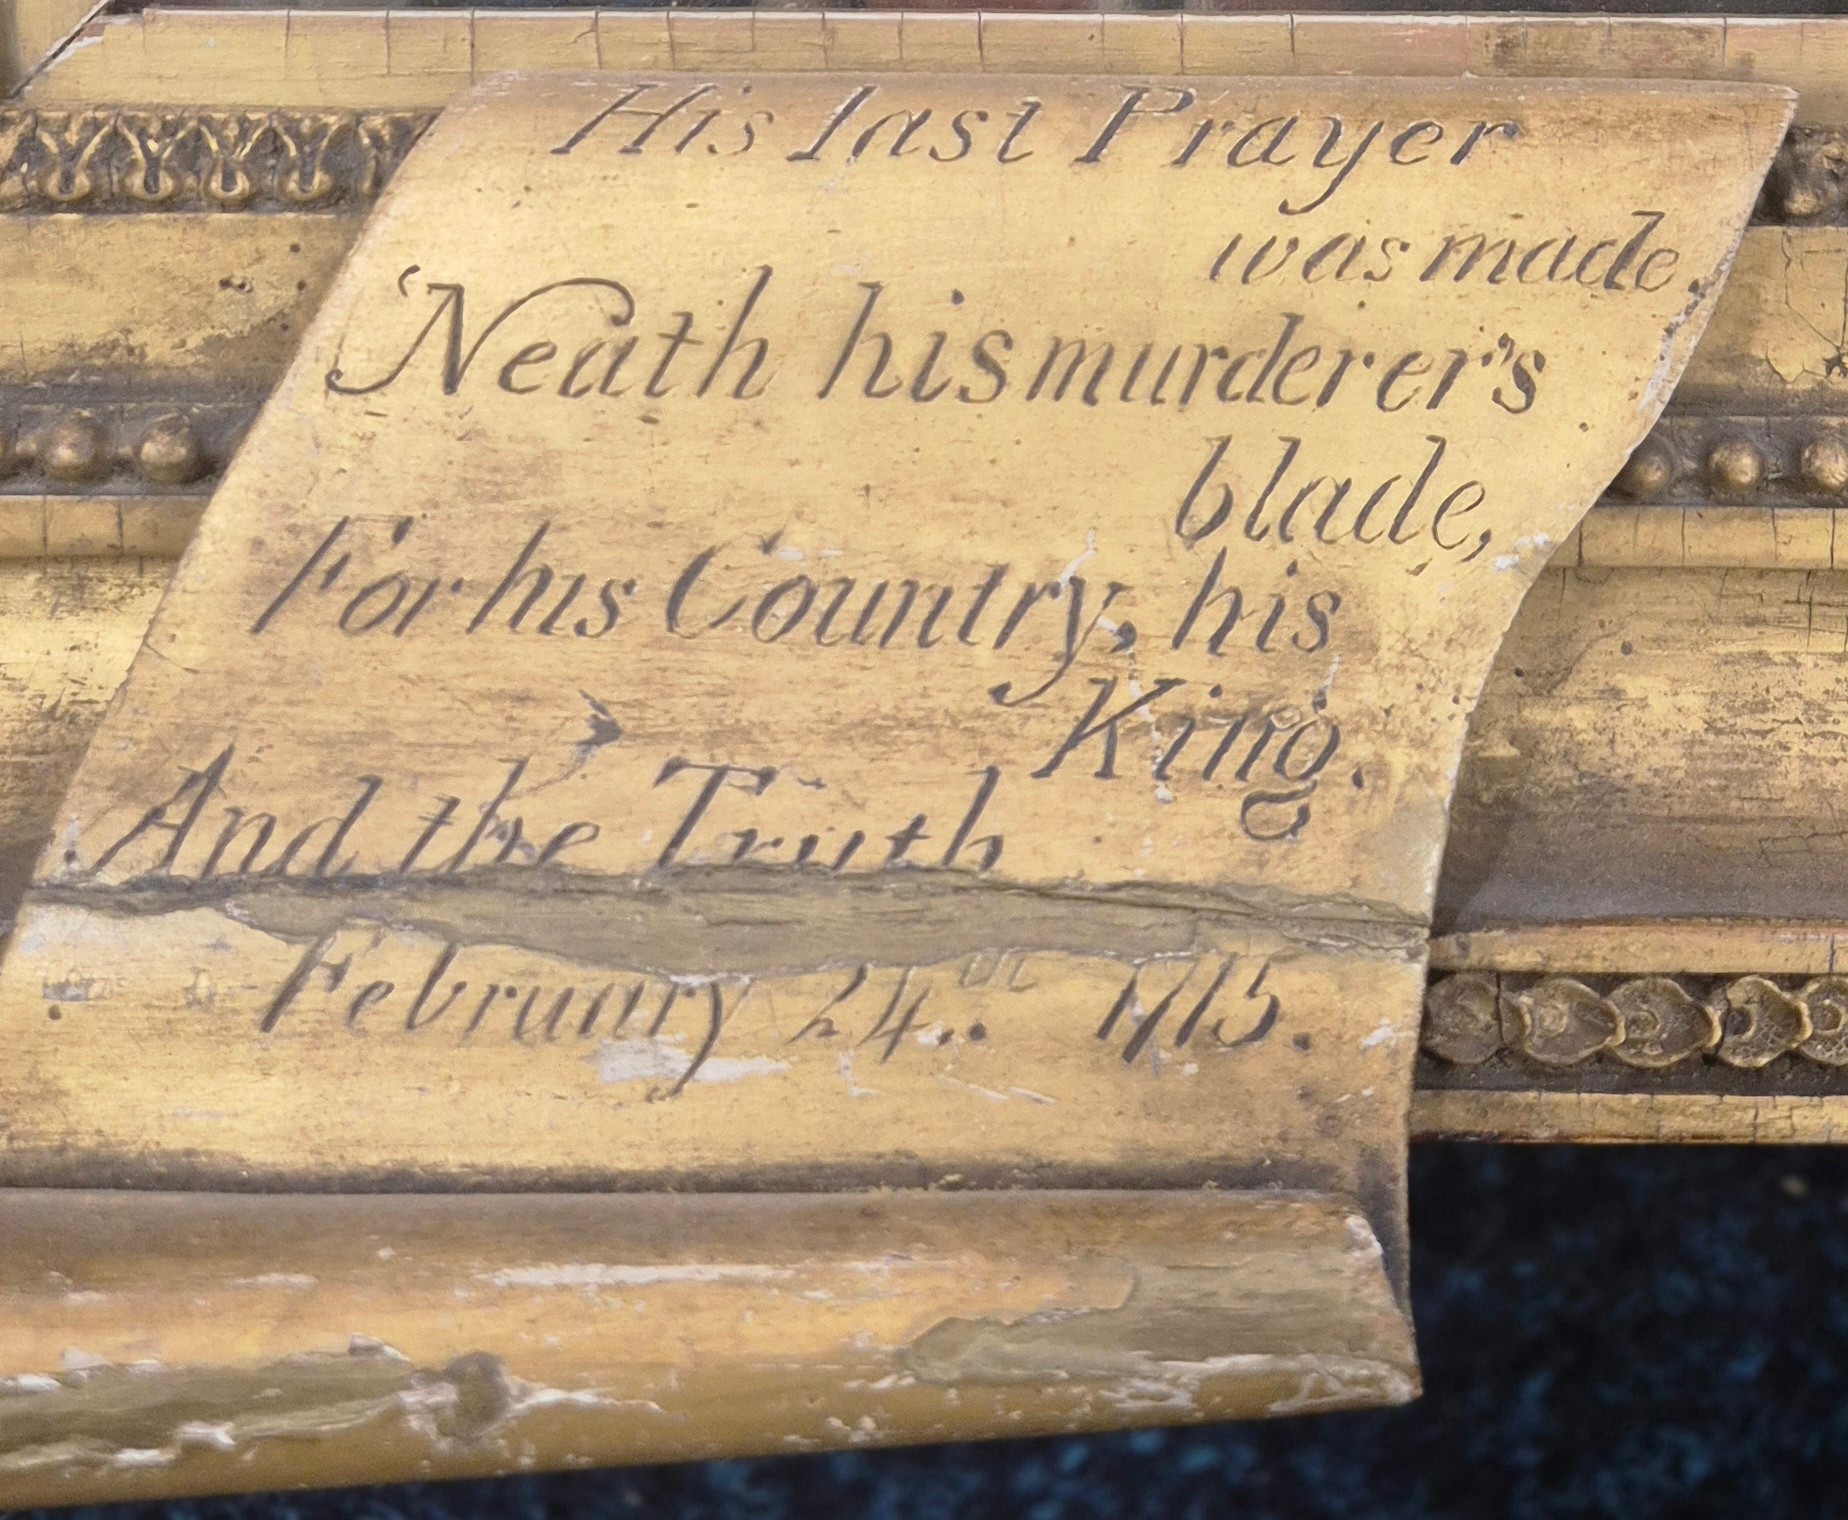 His last Prayer
was made,
'Neath his murderer's
blade,
For his Country, his
King.
And the Truth
February 24th 1715.